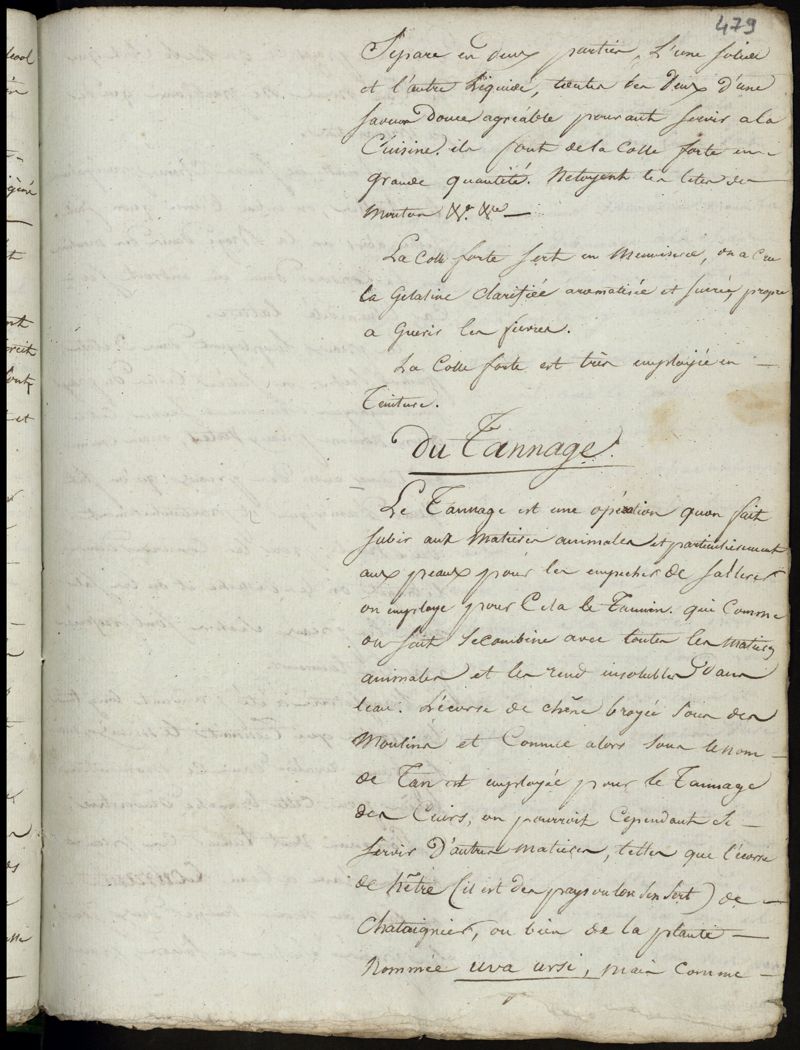 479
Separe en deux parties, L'une solide
et l'autre Liquide, toutes les Deux d'une
saveur Douce agréable pouvant servir a la
Cuisine. ils font de la Colle forte en
grande quantité. Netoyent les tetes de
Mouton &c. &c —
La Colle forte sert en Menuiserie, on a Cru
la Gelatine Clarifiée aromatisée et sucrée, propre
a Guerir les fievres.
La Colle forte est très employée en —
Teinture.
Du Tannage.
Le Tannage est une opération quon fait
subir aux Matieres animales et particulierement
aux peaux pour les empecher de s'alterer
on employe pour Cela le Tannin. qui Comme
on sait se combine avec toutes les matieres
animales et les rend insolubles Dans
leau. L'écorse de chêne broyée Sous des
Moulins et Connue alors sous le nom —
de Tan est employée pour le Tannage
des Cuirs, on pourroit Cependant se —
servir D'autres matieres, telles que l'écorse
de hêtre (il est des pays ou lon s'en sert) de —
Chataignier, ou bien de la plante —
Nommée uva ursi, mais Comme —